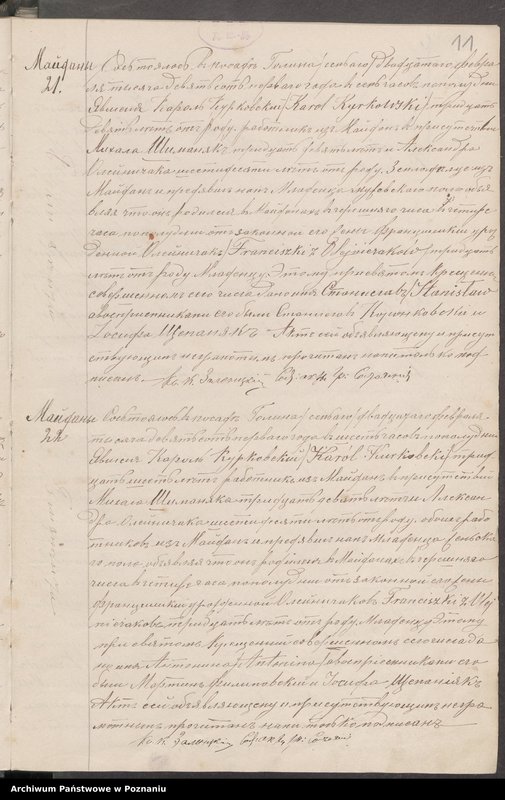 11.
Майданы Состоялось въ посадѣ Голина седьмаго (двадцатаго) февра-
21. ля тысяча девятьсотъ перваго года въ семь часовъ пополудни
Явился Кароль Курковскій (Karol Kurkowski) тридцать
лѣтъ отъ роду, работникъ изъ Майданъ въ присутствіи
Михала Шиманякъ тридцать девять лѣтъ и Александра
Олейничака шестидесяти лѣтъ отъ роду,
Майданъ и предъявилъ намъ младенца мужескаго пола объя-
вляя что онъ родился въ Майданахъ вчерашняго числа въ четыре
часа пополудни отъ законной его жены Францишки уро-
жденной Олейничакъ (Franciszki z Olejniczaków) тридцать
лѣтъ отъ роду. Младенцу этому при святомъ крещеніи
совершенномъ сего числа дано имя Станиславъ (Stanisław)
а восприемниками его были Станиславъ Курковскій и
Іосифа Щепанякъ. Актъ сей объявляющему и присут-
ствующимъ неграмотнымъ прочитанъ нами только под-
писанъ.
Майданы Состоялось въ посадѣ Голина седьмаго (двадцатаго) февраля
22 тысяча девятьсотъ перваго года въ шесть часовъ пополудни
Явился Кароль Курковскій (Karol Kurkowski) трид-
цать шесть лѣтъ работникъ изъ Майданъ въ присутствіи
Михала Шиманяка тридцать девять лѣтъ и Алексан-
дра Олейничака шестидесяти лѣтъ отъ роду. обоихъ рабо-
тниковъ изъ Майданъ и предъявилъ намъ младенца женска-
го пола объявляя что онъ родился въ Майданахъ вчерашняго
числа въ четыре часа пополудни отъ законной его жены
Францишки урожденной Олейничаковъ (Franciszki z Olej-
niczaków) тридцать лѣтъ отъ роду. Младенцу этому
при святомъ крещеніи совершенномъ сего числа да-
но имя Антонина (Antonina) а восприемниками его
были Мартинъ Филиповскій и Іосифа Щепанякъ
Актъ сей объявляющему и присутствующимъ негра-
мотнымъ прочитанъ нами только подписанъ
Archiwum Państwowe w Poznaniu